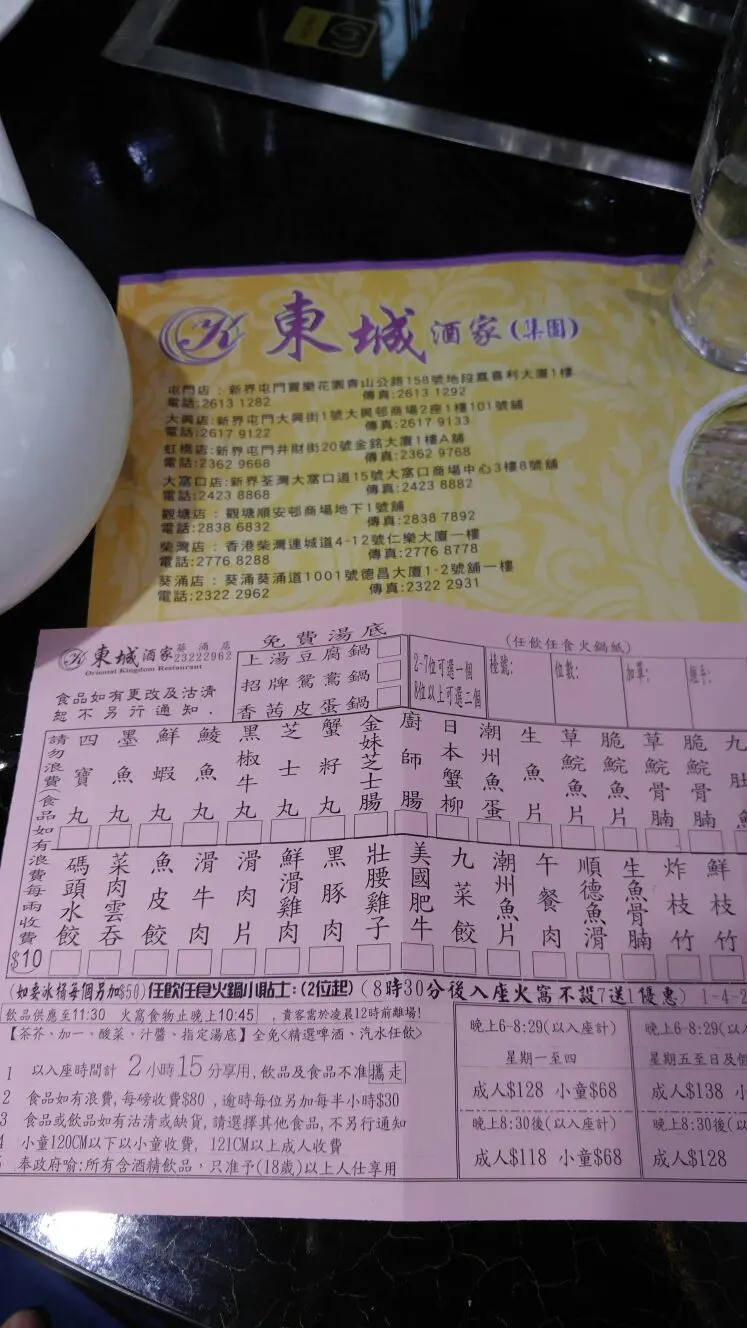 東城酒家(集團)
屯門店：新界屯門置樂花園青山公路158號地段嘉喜利大廈1樓
電話:2613 1282 傳真:2613 1292
大興店:新界屯門大興街1號大興邨商場2座1樓101號舖
電話:2617 9122 傳真:2617 9133
虹橋店:新界屯門井財街20號金銘大廈1樓A舖
電話:2362 9668 傳真:2362 9768
大窩口店:新界荃灣大窩口道15號大窩口商場中心3樓8號舖
電話:2423 8868 傳真:2423 8882
觀塘店：觀塘順安邨商場地下1號舖
電話:2838 6832 傳真:2838 7892
柴灣店：香港柴灣連城道4-12號仁樂大廈一樓
電話:2776 8288 傳真:2776 8778
葵涌店：葵涌葵涌道1001號德昌大廈1-2號舖一樓
電話:2322 2962 傳真:2322 2931
東城酒家 葵涌店 23222962
Oriental Kingdom Restaurant
食品如有更改及沽清
恕不另行通知.
免費湯底
上湯豆腐鍋
招牌鴛鴦鍋
香茜皮蛋鍋
2-7位可選一個
8位以上可選二個
(任飲任食火鍋紙)
檯號:
位數:
加單:
經手:
請勿浪費(食品如有浪費每兩收費$10
四寶丸
墨魚丸
鮮蝦丸
鯪魚丸
黑椒牛丸
芝士丸
蟹籽丸
金妹芝士腸
廚師腸
日本蟹柳
潮州魚蛋
生魚片
草鯇魚片
脆鯇魚片
草鯇骨腩
脆鯇骨腩
碼頭水餃
菜肉雲吞
魚皮餃
滑牛肉
滑肉片
鮮滑雞肉
黑豚肉
壯腰雞子
美國肥牛
九菜餃
潮州魚片
午餐肉
順德魚滑
生魚骨腩
炸枝竹
鮮枝竹
(如要冰桶每個另加$50)任飲任食火鍋小貼士:(2位起)(8時30分後入座火窩不設7送1優惠) 1-4-2
飲品供應至11:30 火窩食物止晚上10:45 ，貴客需於凌晨12時前離場!
【茶芥、加一、酸菜、汁醬、指定湯底】全免<精選啤酒、汽水任飲>
1 以入座時間計 2小時15分享用,飲品及食品不准攜走
2 食品如有浪費,每磅收費$80 ,逾時每位另加每半小時$30
3 食品或飲品如有沽清或缺貨,請選擇其他食品,不另行通知
4 小童120CM以下以小童收費, 121CM以上成人收費
奉政府喻:所有含酒精飲品，只准予(18歲)以上人仕享用
晚上6-8:29(以入座計)
星期一至四
成人$128 小童$68
晚上8:30後(以入座計)
成人$118 小童$68
晚上6-8:29(以入
星期五至日及
成人$138 小
晚上8:30後(以
成人$128